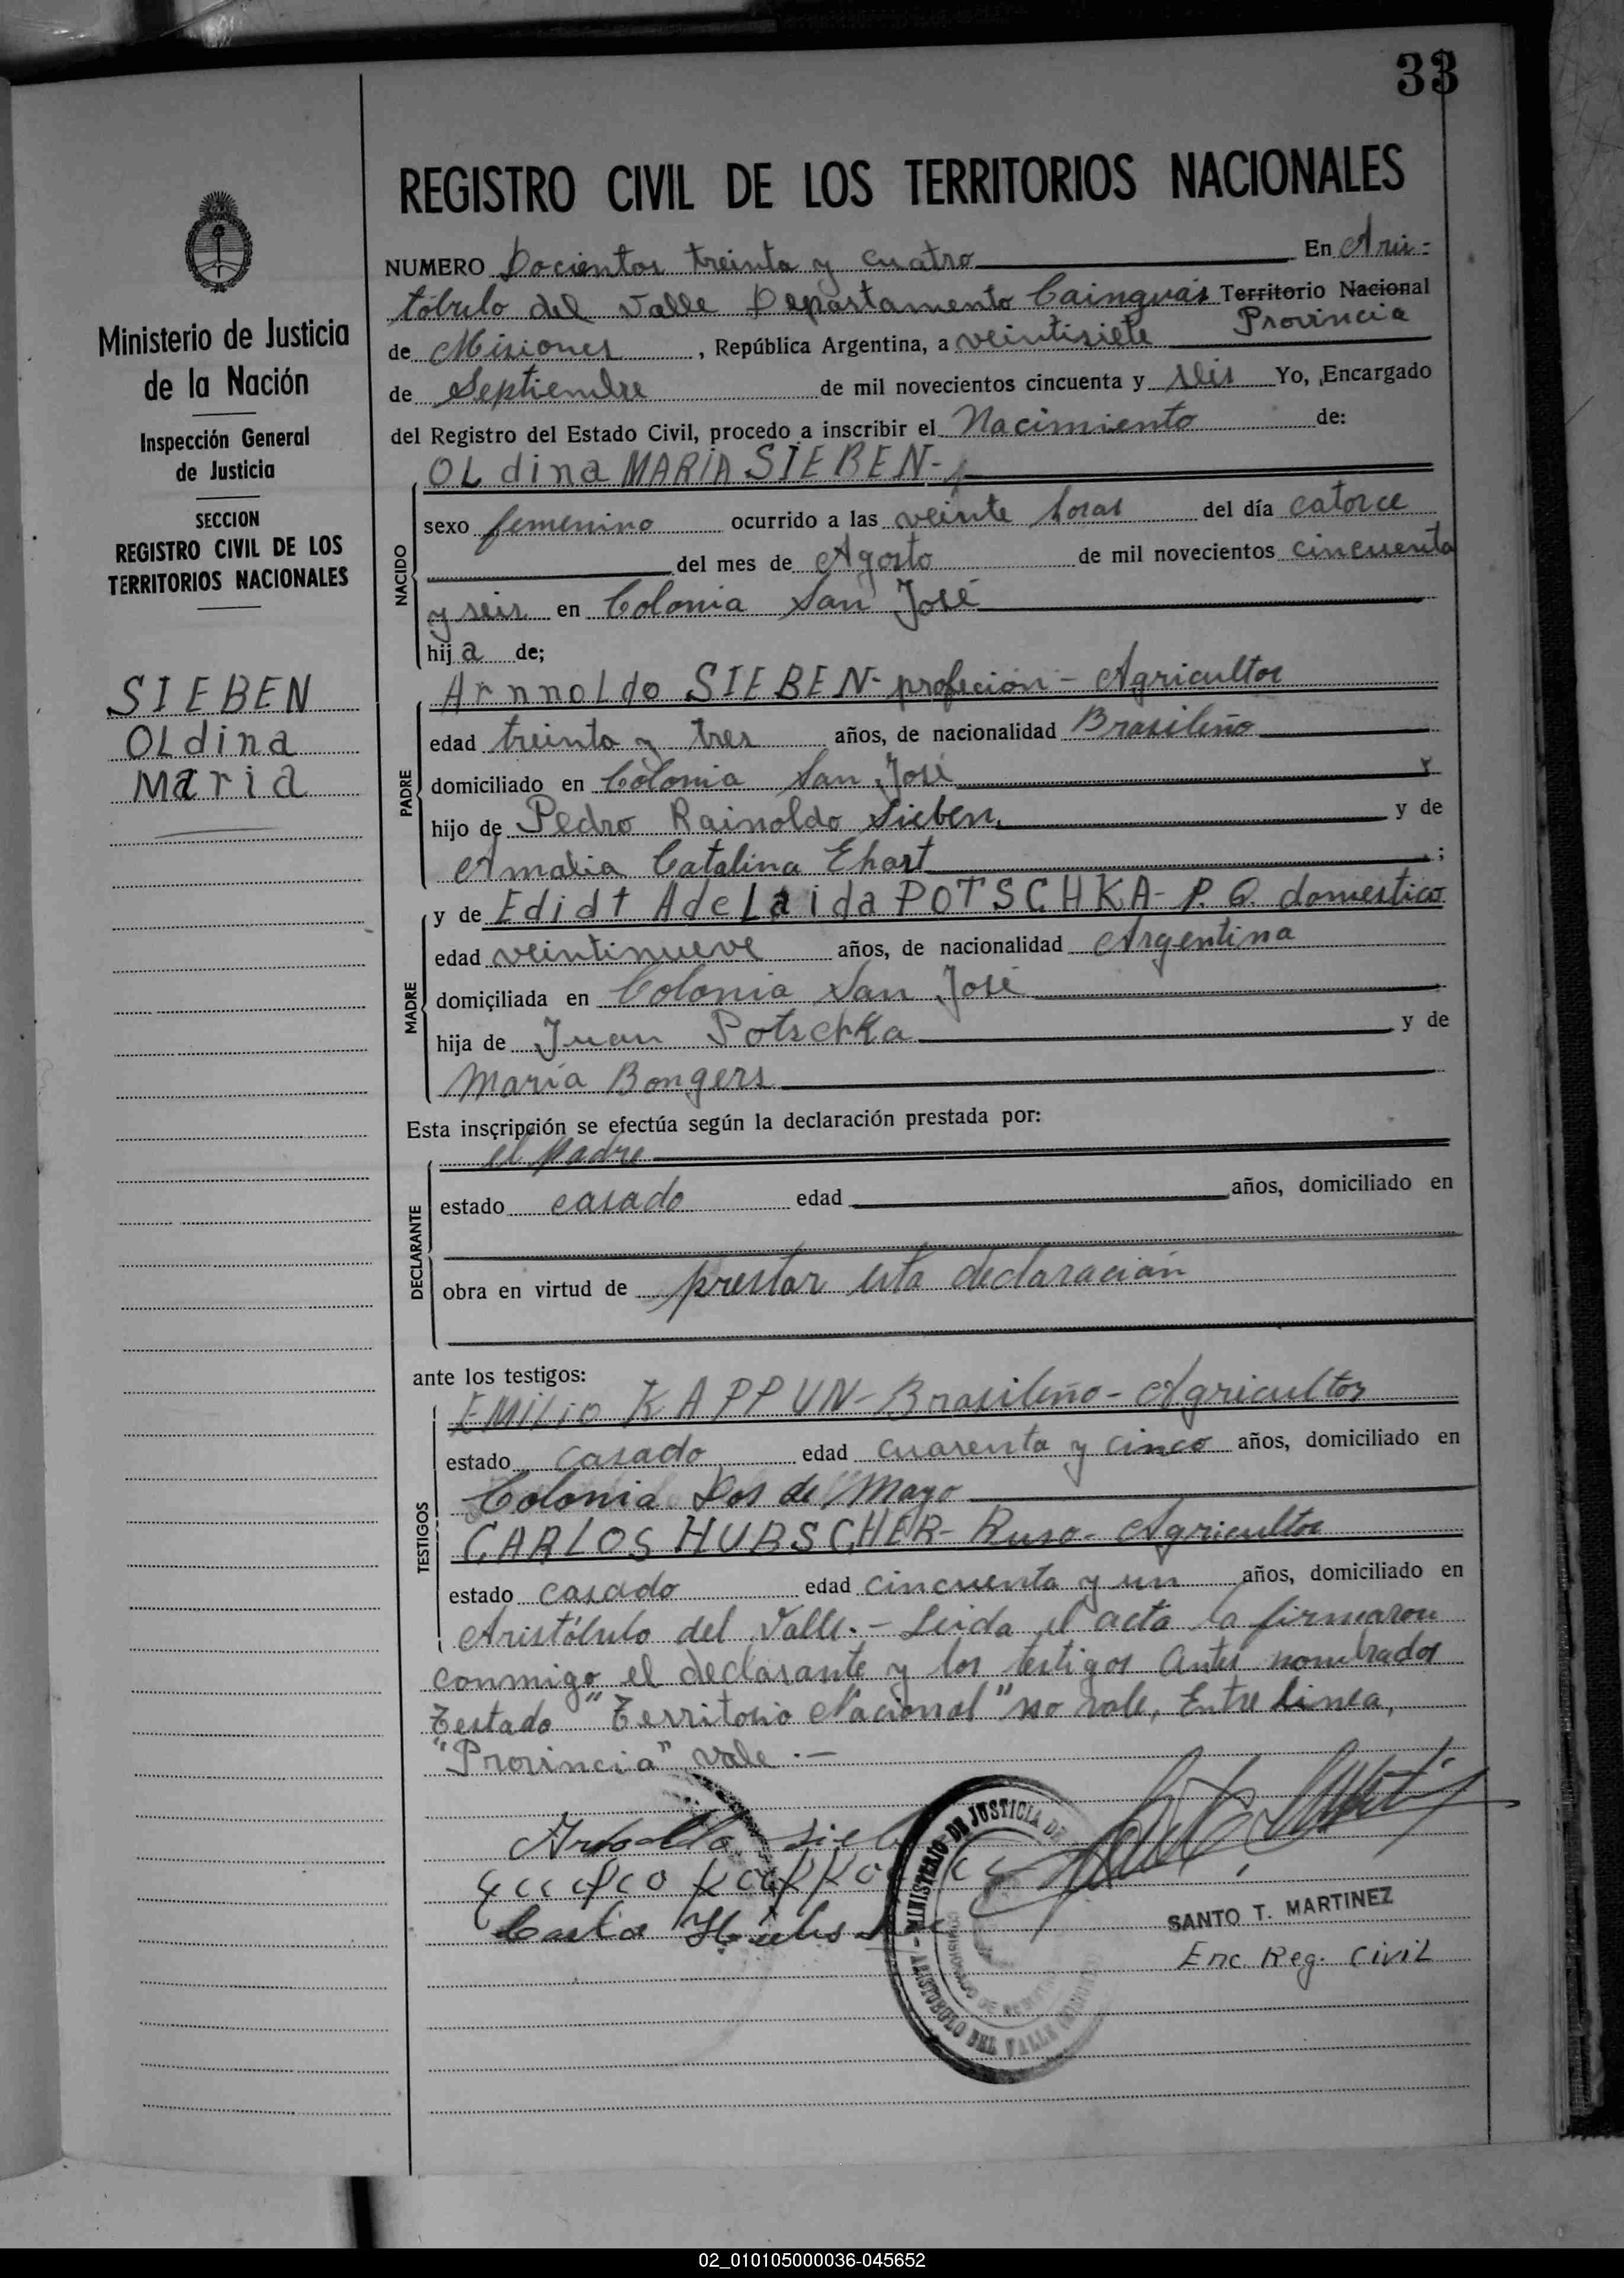 33
REGISTRO CIVIL DE LOS TERRITORIOS NACIONALES
Ministerio de Justicia
de la Nación
Inspección General
de Justicia
SECCION
REGISTRO CIVIL DE LOS
TERRITORIOS NACIONALES
SIEBEN
OLdina
Maria
NUMERO Docientos treinta y cuatro En Aris-
tóbulo del Valle Departamento Cainguás Territorio Nacional
Provincia
de Misiones, República Argentina, a veintisiete
de Septiembre de mil novecientos cincuenta y seis Yo, Encargado
del Registro del Estado Civil, procedo a inscribir el Nacimiento de:
NACIDO
OLdina MARIA SIEBEN-
sexo femenino ocurrido a las veinte horas del día catorce
del mes de Agosto de mil novecientos cincuenta
y seis en Colonia San José
hija de;
PADRE
ArnnoLdo SIEBEN- profecion - Agricultor
edad treinta y tres años, de nacionalidad Brasileño
domiciliado en Colonia San José
hijo de Pedro Rainoldo Sieben, y de
Amalia Catalina Ehart ;
MADRE
y de Edidt AdeLaida POTSCHKA- P. Q. domestico
edad veintinueve años, de nacionalidad Argentina
domiciliada en Colonia San José
hija de Juan Potschka y de
María Bongers
Esta inscripción se efectúa según la declaración prestada por:
DECLARANTE
el padre
estado casado edad años, domiciliado en
obra en virtud de prestar esta declaración
ante los testigos:
TESTIGOS
EMILio KAPPUN- Brasileño- Agricultor
estado casado edad cuarenta y cinco años, domiciliado en
Colonia Dos de Mayo
CARLOS HUBSCHER- Ruso- Agricultor
estado casado edad cincuenta y un años, domiciliado en
Aristóbulo del Valle.- Leida el acta la firmaron
conmigo el declarante y los testigos antes nombrados
Testado "Territorio Nacional" no vale, Entre linea,
"Provincia" vale.-
MINISTERIO DE JUSTICIA DE
ARISTOBULO DEL VALLE
SANTO T. MARTINEZ
Enc. Reg. CiviL
02_010105000036-045652